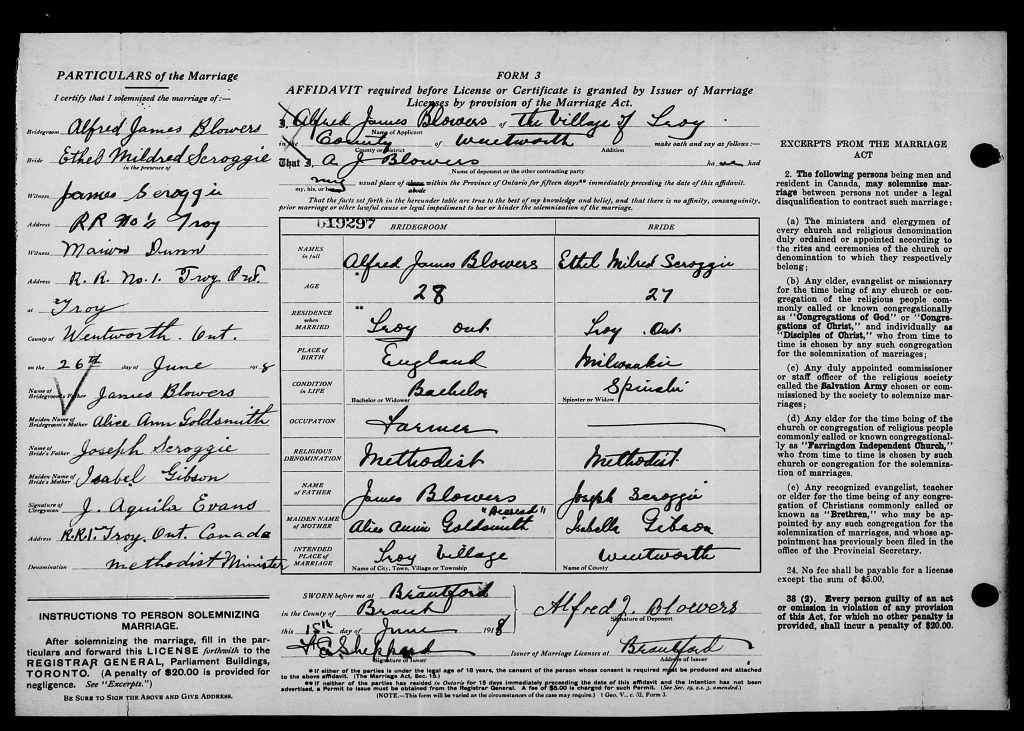 PARTICULARS of the Marriage
I certify that I solemnized the marriage of:—
Bridegroom Alfred James Blowers
Bride Ethel Mildred Scroggie
in the presence of
Witness James Scroggie
Address RR No's Troy
Witness Dunn
Address R. R. No. 1. Troy Ont.
at Troy
County of Wentworth. Ont.
on the 26th day of June 1918
Name of Bridegroom's Father James Blowers
Maiden Name of Bridegroom's Mother Alice Ann Goldsmith
Name of Bride's Father Joseph Scroggie
Maiden Name of Bride's Mother Isabel Gibson
Signature of Clergyman J. Aquila Evans
Address R.R.1. Troy. Ont. Canada
Denomination Methodist Minister
INSTRUCTIONS TO PERSON SOLEMNIZING
MARRIAGE.
After solemnizing the marriage, fill in the par-
ticulars and forward this LICENSE forthwith to the
REGISTRAR GENERAL, Parliament Buildings,
TORONTO. (A penalty of $20.00 is provided for
negligence. See "Excerpts.")
BE SURE TO SIGN THE ABOVE AND GIVE ADDRESS.
FORM 3
AFFIDAVIT required before License or Certificate is granted by Issuer of Marriage
Licenses by provision of the Marriage Act.
I, Alfred James Blowers of the Village of Troy
Name of Applicant
in the County of Wentworth make oath and say as follows:—
County or District Addition
That I, A J Blowers ha had
Name of deponent or the other contracting party
my usual place of abode within the Province of Ontario for fifteen days** immediately preceding the date of this affidavit.
my, his, or her abode
That the facts set forth in the hereunder table are true to the best of my knowledge and belief, and that there is no affinity, consanguinity,
prior marriage or other lawful cause or legal impediment to bar or hinder the solemnization of the marriage.
519297 BRIDEGROOM BRIDE
NAMES in full Alfred James Blowers Ethel Milred Scroggie
AGE 28 27
RESIDENCE when MARRIED Troy Ont Troy Ont
PLACE of BIRTH England Milwaukie
CONDITION IN LIFE Bachelor Spinster
Bachelor or Widower Spinster or Widow
OCCUPATION Farmer
RELIGIOUS DENOMINATION Methodist Methodist
NAME OF FATHER James Blowers Joseph Scroggie
MAIDEN NAME OF MOTHER Alice Annie Goldsmith "Deceased" Isabella Gibson
INTENDED PLACE of MARRIAGE Troy Village Wentworth
Name of City, Town, Village or Township Name of County
SWORN before me at Brantford
in the County of Brant
this 15th day of June 1918
Alfred J. Blowers
Signature of Deponent
Sheppard Issuer of Marriage Licenses at Brantford
Signature of Issuer Address of Issuer
* If either of the parties is under the legal age of 18 years, the consent of the person whose consent is required must be produced and attached
to the above affidavit. (The Marriage Act, Sec. 15.)
** If neither of the parties has resided in Ontario for 15 days immediately preceding the date of this affidavit and the intention has not been
advertised, a Permit to issue must be obtained from the Registrar General. A fee of $5.00 is charged for such Permit. (See Sec. 19, s.s. 3, amended.)
(NOTE.—This form will be varied as the circumstances of the case may require.) 1 Geo. V., c. 32, Form 3.
EXCERPTS FROM THE MARRIAGE
ACT
2. The following persons being men and
resident in Canada, may solemnize mar-
riage between persons not under a legal
disqualification to contract such marriage:
(a) The ministers and clergymen of
every church and religious denomination
duly ordained or appointed according to
the rites and ceremonies of the church or
denomination to which they respectively
belong;
(b) Any elder, evangelist or missionary
for the time being of any church or con-
gregation of the religious people com-
monly called or known congregationally
as "Congregations of God" or "Congre-
gations of Christ," and individually as
"Disciples of Christ," who from time to
time is chosen by any such congregation
for the solemnization of marriages;
(c) Any duly appointed commissioner
or staff officer of the religious society
called the Salvation Army chosen or com-
missioned by the society to solemnize mar-
riages;
(d) Any elder for the time being of the
church or congregation of religious people
commonly called or known congregational-
ly as "Farringdon Independent Church,"
who from time to time is chosen by such
church or congregation for the solemniza-
tion of marriages.
(e) Any recognized evangelist, teacher
or elder for the time being of any congre-
gation of Christians commonly called or
known as "Brethren," who may be ap-
pointed by any such congregation for the
solemnization of marriages, and whose ap-
pointment has previously been filed in the
office of the Provincial Secretary.
24. No fee shall be payable for a license
except the sum of $5.00.
38 (2). Every person guilty of an act
or omission in violation of any provision
of this Act, for which no other penalty is
provided, shall incur a penalty of $20.00.